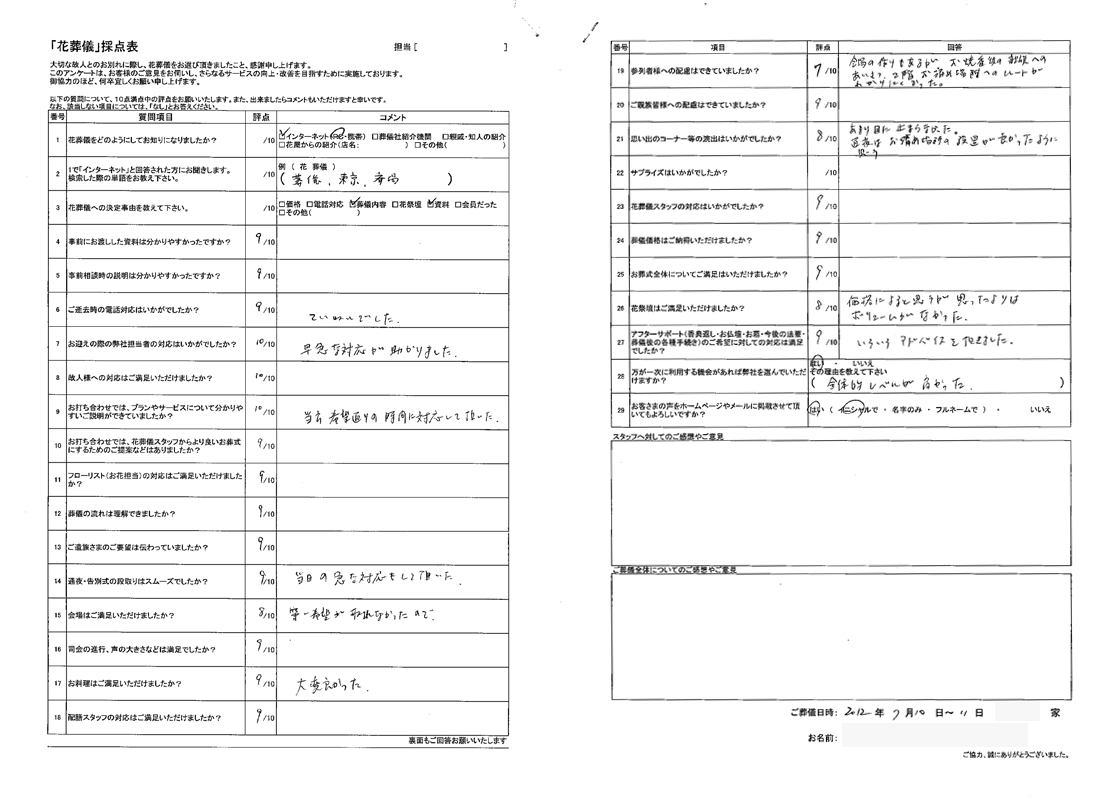 「花葬儀」採点表
担当 [ ]
大切な故人とのお別れに際し、花葬儀をお選び頂きましたこと、感謝申し上げます。
このアンケートは、お客様のご意見をお伺いし、さらなるサービスの向上・改善を目指すために実施しております。
御協力のほど、何卒宜しくお願い申し上げます。
以下の質問について、10点満点中の評点をお願いいたします。また、出来ましたらコメントもいただけますと幸いです。
なお、該当しない項目については、「なし」とお答えください。
番号 質問項目 評点 コメント
1 花葬儀をどのようにしてお知りになりましたか? /10 ☑インターネット(PC・携帯) □葬儀社紹介機関 □親戚・知人の紹介
□花屋からの紹介(店名: ) □その他( )
2 1で「インターネット」と回答された方にお聞きします。
検索した際の単語をお教え下さい。 /10 例 ( 花 葬儀 )
( 葬儀、東京、斎場 )
3 花葬儀への決定事由を教えて下さい。 /10 □価格 □電話対応 ☑葬儀内容 □花祭壇 ☑資料 □会員だった
□その他( )
4 事前にお渡しした資料は分かりやすかったですか? 9/10
5 事前相談時の説明は分かりやすかったですか? 9/10
6 ご逝去時の電話対応はいかがでしたか? 9/10 ていねいでした。
7 お迎えの際の弊社担当者の対応はいかがでしたか? 10/10 早急な対応が助かりました。
8 故人様への対応はご満足いただけましたか? 10/10
9 お打ち合わせでは、プランやサービスについて分かりや
すいご説明ができていましたか? 10/10 当方希望通りの時間に対応して頂いた。
10 お打ち合わせでは、花葬儀スタッフからより良いお葬式
にするためのご提案などはありましたか? 9/10
11 フローリスト(お花担当)の対応はご満足いただけました
か? 9/10
12 葬儀の流れは理解できましたか? 9/10
13 ご遺族さまのご要望は伝わっていましたか? 9/10
14 通夜・告別式の段取りはスムーズでしたか? 9/10 当日の急な対応をして頂いた
15 会場はご満足いただけましたか? 8/10 第一希望が取れなかったので
16 司会の進行、声の大きさなどは満足でしたか? 9/10
17 お料理はご満足いただけましたか? 9/10 大変良かった。
18 配膳スタッフの対応はご満足いただけましたか? 9/10
裏面もご回答お願いいたします
番号 項目 評点 回答
19 参列者様への配慮はできていましたか? 7/10 会場の作りもあるが、お焼香後の親族への
あいさつ、2階お清め場所へのルートが
わかりにくかった。
20 ご親族皆様への配慮はできていましたか? 9/10
21 思い出のコーナー等の演出はいかがでしたか? 8/10 あまり目に止まらなかった。
通夜はお清め場所の設置が良かったように
思う
22 サプライズはいかがでしたか? /10
23 花葬儀スタッフの対応はいかがでしたか? 9/10
24 葬儀価格はご納得いただけましたか? 9/10
25 お葬式全体についてご満足はいただけましたか? 9/10
26 花祭壇はご満足いただけましたか? 8/10 価格によると思うが思ったよりは
ボリュームがなかった。
27 アフターサポート(香典返し・お仏壇・お墓・今後の法要・
葬儀後の各種手続き)のご希望に対しての対応は満足
でしたか? 9/10 いろいろアドバイスを頂きました。
28 万が一次に利用する機会があれば弊社を選んでいただ
けますか? はい ・ いいえ
その理由を教えて下さい
( 全体的レベルが高かった。 )
29 お客さまの声をホームページやメールに掲載させて頂
いてもよろしいですか? はい ( イニシャルで ・ 名字のみ ・ フルネームで ) ・ いいえ
スタッフへ対してのご感想やご意見
ご葬儀全体についてのご感想やご意見
ご葬儀日時: 2012 年 7 月 10 日~ 11 日 家
お名前:
ご協力、誠にありがとうございました。